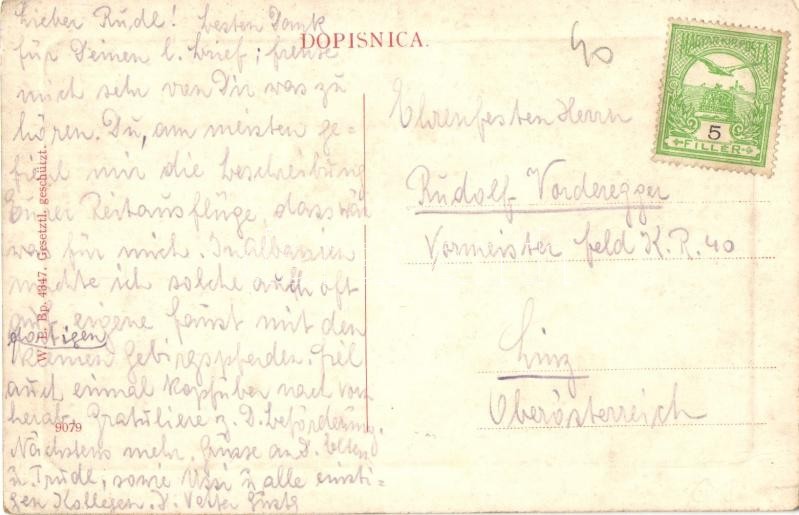 Lieber Rudl! besten Dank
für Deinen l. brief; freute
mich sehr von Dir was zu
hören. Du, am meisten ge-
fiel mir die beschreibung
Eurer Reitausflüge, dass wär
was für mich. In Albanien
machte ich solche auch oft
auf eigene faust mit den
dortigen
kleinen Gebirgspferden. fiel
auch einmal kopfüber nach vorn
herab. Gratuliere z. D. beförderung.
Nächstens mehr. Grüsse an D. Eltern
u. Trudl, sowie u alle einsti-
gen Kollegen. D. Vetter
DOPISNICA.
W. L. Bp. 4347. Gesetztl. geschützt.
9079
40
MAGYAR KIR. POSTA
5
FILLÉR
Ehrenfesten Herrn
Rudolf Vorderegger
Vormeister feld K. R. 40
Linz
Oberösterreich